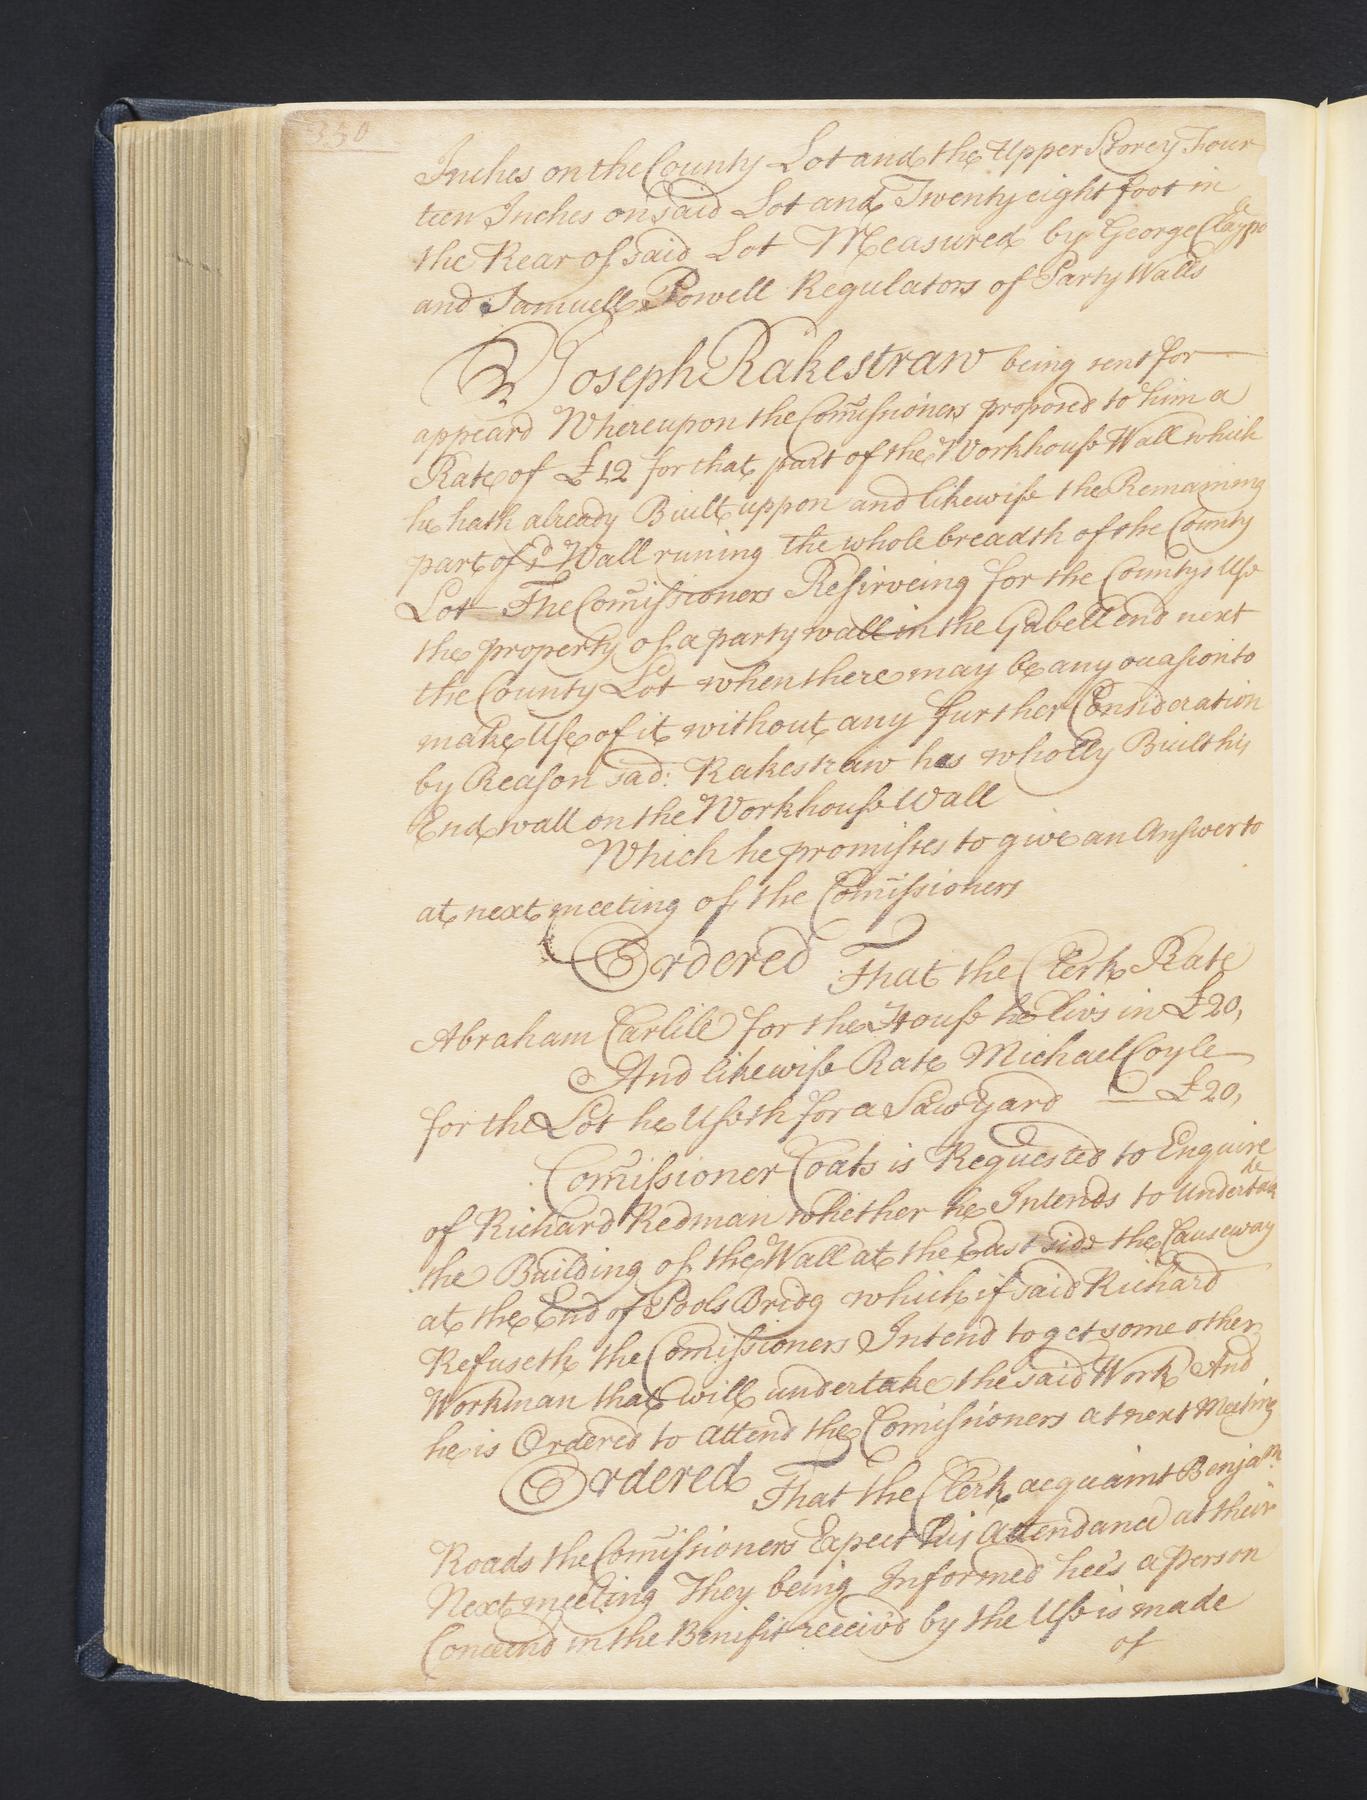 350
Inches on the County Lot and the Upper Storey Four
teen Inches on said Lot and Twenty eight foot in
the Rear of said Lot Measured by George Claypo
le
and Samuell Powell Regulators of Party Walls
Joseph Rakestraw being sent for
appeard Whereupon the Com̃issioners proposed to him a
Rate of £12 for that part of the Workhouse Wall which
he hath already Built uppon and likewise the Remaining
part of sd Wall runing the whole breadth of the County
Lot The Com̃issioners Resirveing for the Countys Use
the property of a party wall in the Gabell end next
the County Lot when there may be any ocasion to
make Use of it without any further Consideration
by Reason sad: Rakestraw has wholly Built his
End wall on the Workhouse Wall
Which he promises to give an Answer to
at next meeting of the Com̃issioners
Ordered That the Clerk Rate
Abraham Carlile for the House he livs in £20,
And likewise Rate Michael Coyle
for the Lot he Useth for a Saw Yard — £20,
Com̃issioner Coats is Requested to Enquire
of Richard Redman whether he Intends to Undertak
ke
the Building of the Wall at the East side the Causeway
at the End of Pools Bridg which if said Richard
Refuseth the Com̃issioners Intend to get some other
Workman that will undertake the said Work And
he is Ordered to attend the Com̃issioners at next Meeting
Ordered That the Clerk acquaint Benjam
Roads the Com̃issioners Expect his Attendance at their
Next meeting They being Informed hee's a person
Concernd in the Benifit receivd by the Use is made
of